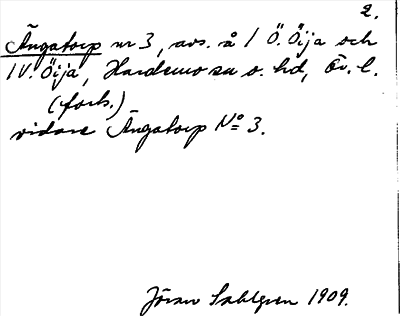 2.
Ängatorp nr 3, avs. å 1 Ö. Öija och
1 V. Öija, Hardemo sn o. hd, Ör. l.
(forts.)
vidare Ängatorp No 3.
Jöran Sahlgren 1909.